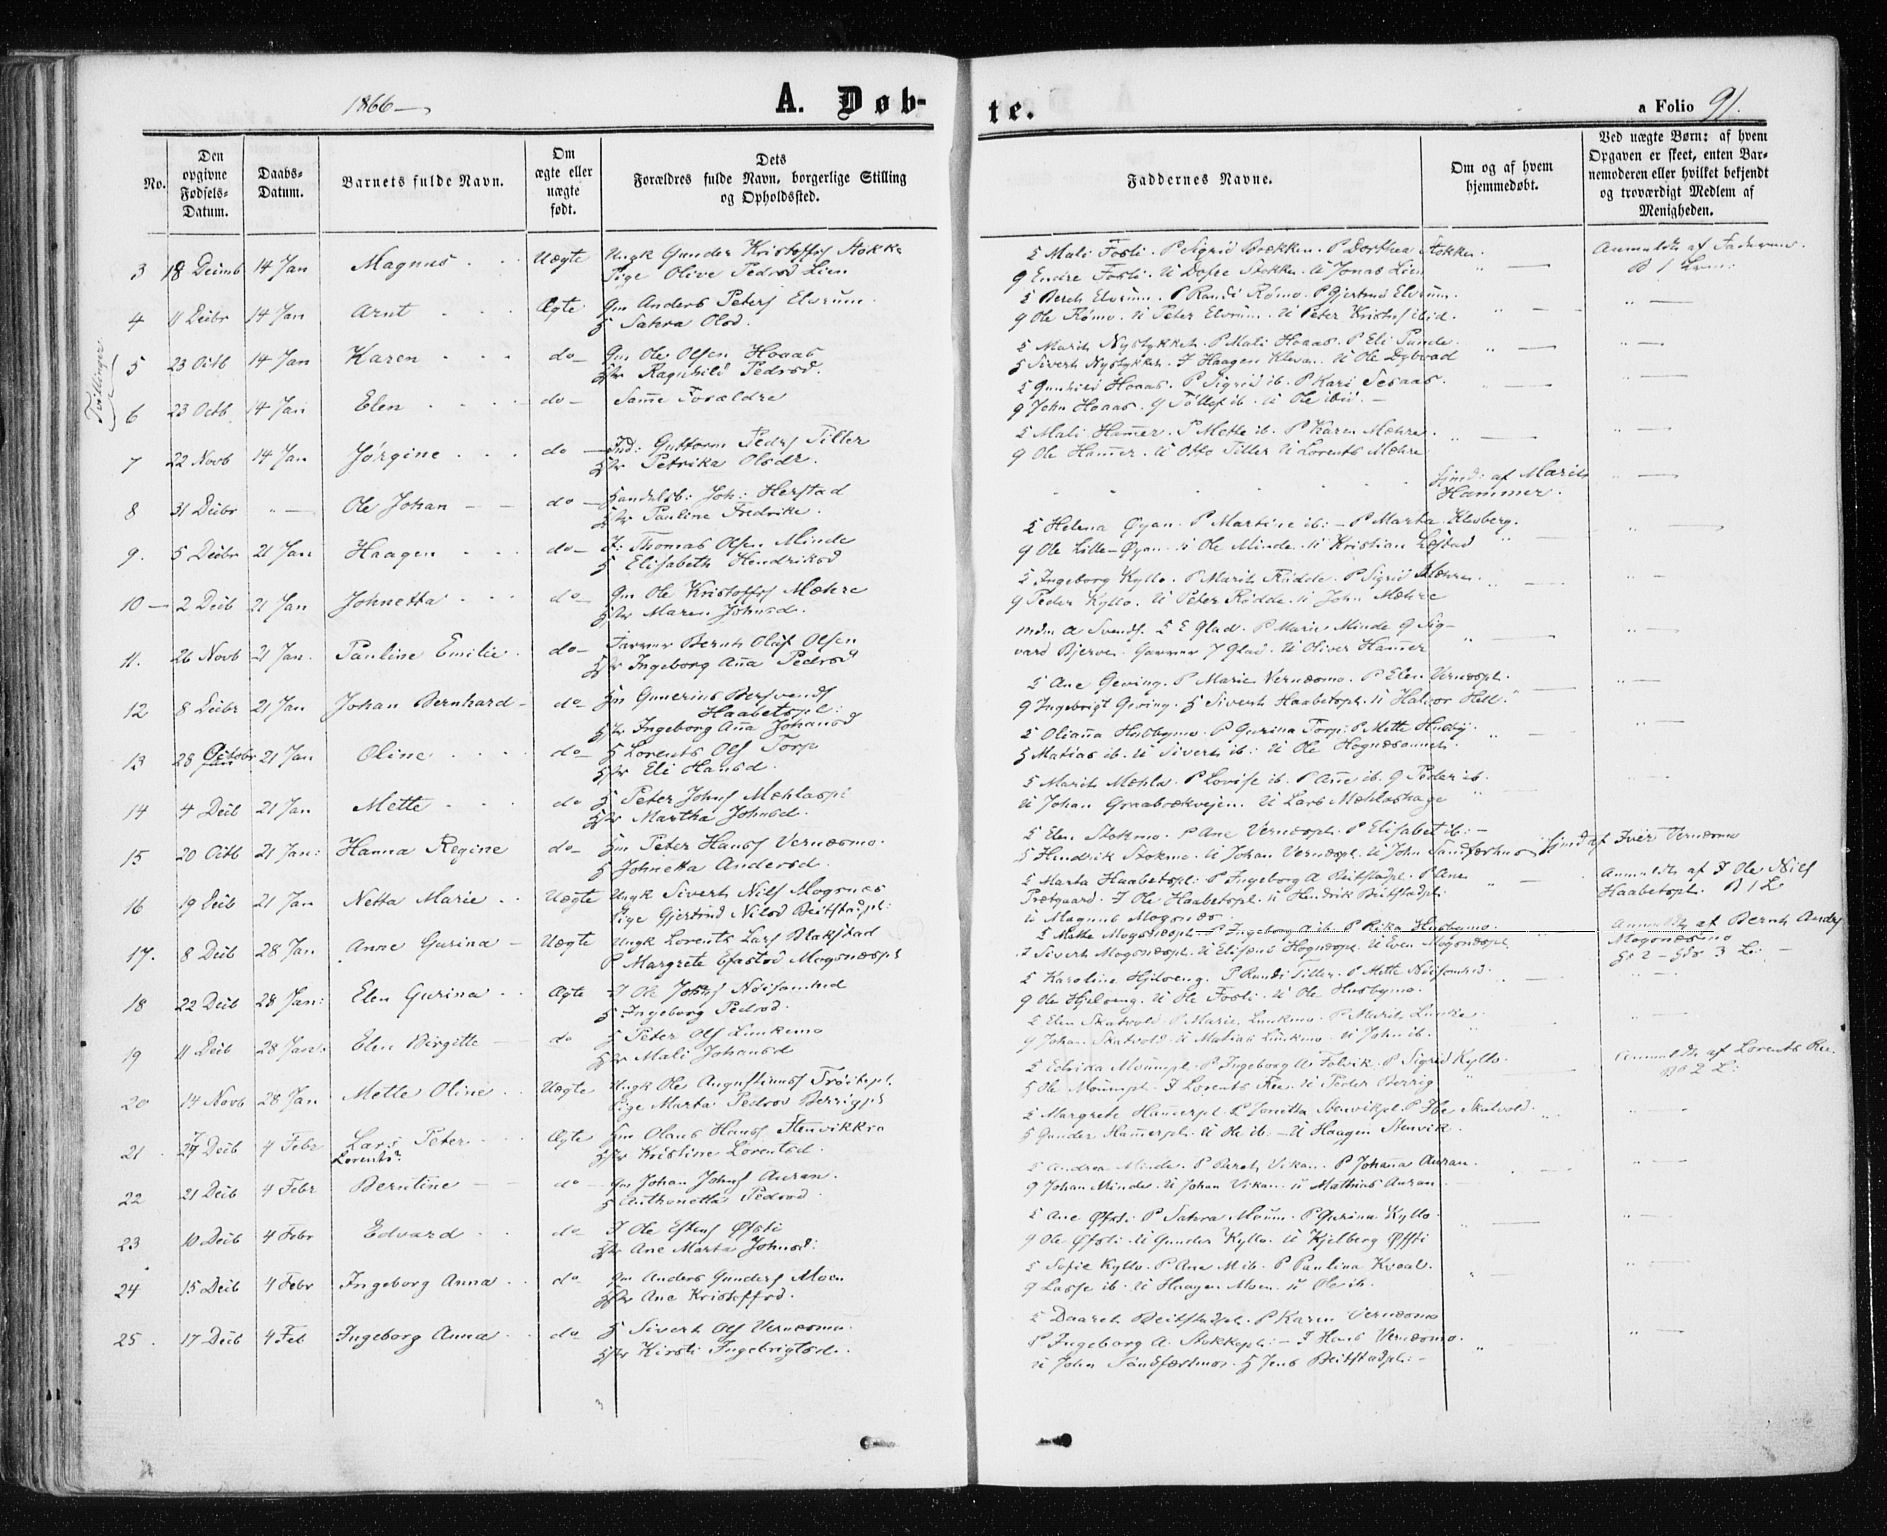 1866 —
A. Døb-
te.
a Folio 91.
No.
Den opgivne Fødsels-Datum.
Daabs-Datum.
Barnets fulde Navn.
Om ægte eller uægte født.
Dets Forældres fulde Navn, borgerlige Stilling og Opholdssted.
Faddernes Navne.
Om og af hvem hjemmedøbt.
Ved uægte Børn: af hvem Opgaven er skeet, enten Barnemoderen eller hvilket bekjendt og troværdigt Medlem af Menigheden.
3 18 Decemb 14 Jan Magnus Uægte Ungk Gunder Kristoffs Stokke
Pige Olive Pedersd Lien
E Mali Fosli. P Sigrid Brækken. P Dorthea Stokken
G Endre Fosli. U Stokken. U Jonas Lien
Anmeldt af Faderen
4 11 Decbr 14 Jan Arnt Ægte Gm Anders Peters Elvrum.
H Sahra Olsd.
E Beret Elvrum. P Randi Römo. P Gjertrud Elvrum.
G Ole Römo. U Peter Elvrum. U Peter Kristofs ibid.
Tvillinger
5 23 Octb 14 Jan Karen do Gm Ole Olsen Hoaas
Hstr Ragnhild Pedersd.
E Marit Nystykket. P Mali Hoaas. P Eli Sunde.
G Sivert Nystykket. I Haagen Klevan. U Ole Dybvad
6 23 Octb 14 Jan Elen do Same Forældre
E Gunhild Hoaas. P Sigrid ib. P Kari Sesaas.
G John Hoaas. G Tøllef ib. U Ole ibid.
7 22 Novb 14 Jan Jørgine do Ind: Guttorm Peders Tiller
Hstr Petrika Olsdr.
E Mali Hamer. P Mette ib. P Karen Mæhre.
G Ole Hamer. U Otto Tiller U Lorents Mæhre
8 31 Decbr Ole Johan do Handelsb: Joh: Herstad
Hstr Pauline Fredrikke.
Hjmd: af Marit Hammer.
9. 5 Decbr 21 Jan Haagen do I: Thomas Olsen Minde
H Elisabeth Hendriksd
E Helena Øyan. P Martine ib: P Marta Klesberg.
G Ole Lille-Øyan. U Ole Minde. U Kristian
10 2 Decb 21 Jan Johnetta do Gm Ole Kristoffs Mæhre
Hstr Maren Johnsd.
E Ingeborg Kyllo. P Marit Rødde. P Sigrid Mæhre
G Peder Kyllo. U Peter Rødde. U John Mæhre
11. 26 Novb 21 Jan. Pauline Emilie do Garver Bernt Oluf Olsen
Hstr Ingeborg Aña Pedersd
Mdm A Svends. E E Glad. P Marie Minde G Sig-
vard Bjerve. Garver J Glad. U Oliver Hamer
12 8 Decbr 21 Jan Johan Bernhard do Hm Gunerius Bersvends
Haabetspl:
Hstr Ingeborg Aña Johansd
E Ane Geving. P Marie Vernæsmo. P Elen Vernæspl.
G Ingebrigt Geving. H Sivert Haabetspl. U Halvor Hell.
13 28 Octobr 21 Jan Oline do H Lorents Ols Torp
Hstr Eli Hansd.
E Oliaña Husbymo. P Gurina Torp. P Mette Husby.
H Matias ib. U Sivert ib: U Ole Hognæsaunet.
14 4 Decb 21 Jan Mette do H Peter Johns Mæhlaspl
Hstr Martha Johnsd.
E Marit Mæhla. P Lovise ib. P Ane ib. G Peder ib.
U Johan Graabrækvejen. U Lars Mæhlashage
15 20 Octb 21 Jan: Hanna Regine do Hm Peter Hans Vernæsmo.
H Johnetta Andersd.
E Elen Stokmo. P Ane Vernæspl. P Elisabet ib:
H Hendrik Stokmo. U Johan Vernæspl. U John Sandfærhus
Hjmd af Iver Vernæsmo
16 19 Decb 21 Jan Netta Marie Uægte Ungk Sivert Nils Mogsnæs
Pige Gjertrud Nilsd Beitstadpl:
E Marta Haabetspl: P Ingeborg A Beitstadpl. P Ane
Prætgaard. I Ole Haabetspl. U Hendrik Beitstadpl.
U Magnus Mogsnæs.
Anmeldt af I Ole Nils
Haabetspl.
17. 8 Decb 28 Jan Anne Gurina Uægte Ungk Lorents Lars Blakstad
P Margrete Efastsd Mogsnæspl
E Mette Mogsnæspl. P Ingeborg A ib. P Rika Husbymo.
I Sivert Mogsnæspl. U Elifæus Hognæspl. U Even Mogsnæspl.
Anmeldt af Bernt Anders
Mogsnæsmo
18 22 Decb 28 Jan: Elen Gurina Ægte I Ole Johns Nöisomhed
H Ingeborg Pedersd.
E Karoline Hjelseng. P Randi Tiller. P Mette Nöisomhed.
G Ole Hjelseng. U Ole Fosli. U Ole Husbymo.
19 11 Decb 28 Jan: Elen Birgitte do H Peter Ols Lunkemo
Hstr Mali Johansd
E Elen Skatvold. P Marie Lunkmo. P Marit Lunke.
G Johan Skatvold. U Matias Lunkmo. U John ib.
20 14 Novb 28 Jan Mette Oline Uægte Ungk Ole Augustinus Trøitepl.
Pige Marta Pedersd Berrigpl
E Edrika Moumpl. P Ingeborg A Folvik. P Sigrid Kyllo.
H Ole Moumpl. I Lorents Ree. U Peder Berrig
Anmeldt af Lorents Ree.
21 Decb 4 Febr Lars Peter Ægte Hm Olaus Hans Stenvikhn
Lorents?
Hstr Kristine Lorentsd.
E Margrete Hamerpl. P Jonetta Stenvikpl P Skatvold.
H Gunder Hamerpl. U Ole ib: U Haagen Stenvik.
22 21 Decb 4 Febr Berntine do Gm Johan Johns Auran.
H Anthonetta Pedersd.
E Andrea Minde. P Beret Vikan. P Johana Auran.
G Johan Minde. U Johan Vikan. U Mathias Auran.
23 10 Decb 4 Febr Edvard do I Ole Estens Øfsti
Hstr Ane Marta Johnsd:
E Ane Øfsti P Sahra Moum. P Gurina Kyllo.
G Ole Øfsti. U Gunder Kyllo. U Kjelberg Øfsti
24 15 Decb 4 Febr Ingeborg Anna do Gm Anders Gunders Moen
Hstr Ane Kristoffsd.
E Sofie Kyllo. P Ane M ib. P Paulina Kvaal.
G Lasse ib. U Haagen Moen. U Ole ib.
25. 17 Decb 4 Feb Ingeborg Anna do H Sivert Ols Vernæsmo.
Hstr Kirsti Ingebrigtsd.
E Daaret Beitstadpl. P Karen Vernæsmo
P Ingeborg A. Stokkepl: I Hans Vernæsmo.
U John Sandfærsmo. H Jens Beitstadpl: